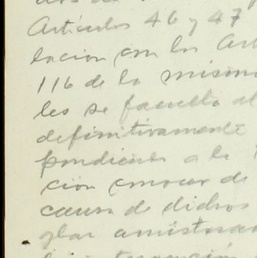 Artículos 46 y 47
lación con los Art
116 de la misma
les se faculta al
definitivamente
pondiente a la
ción conocer de
causa de dichos
glar amistosa